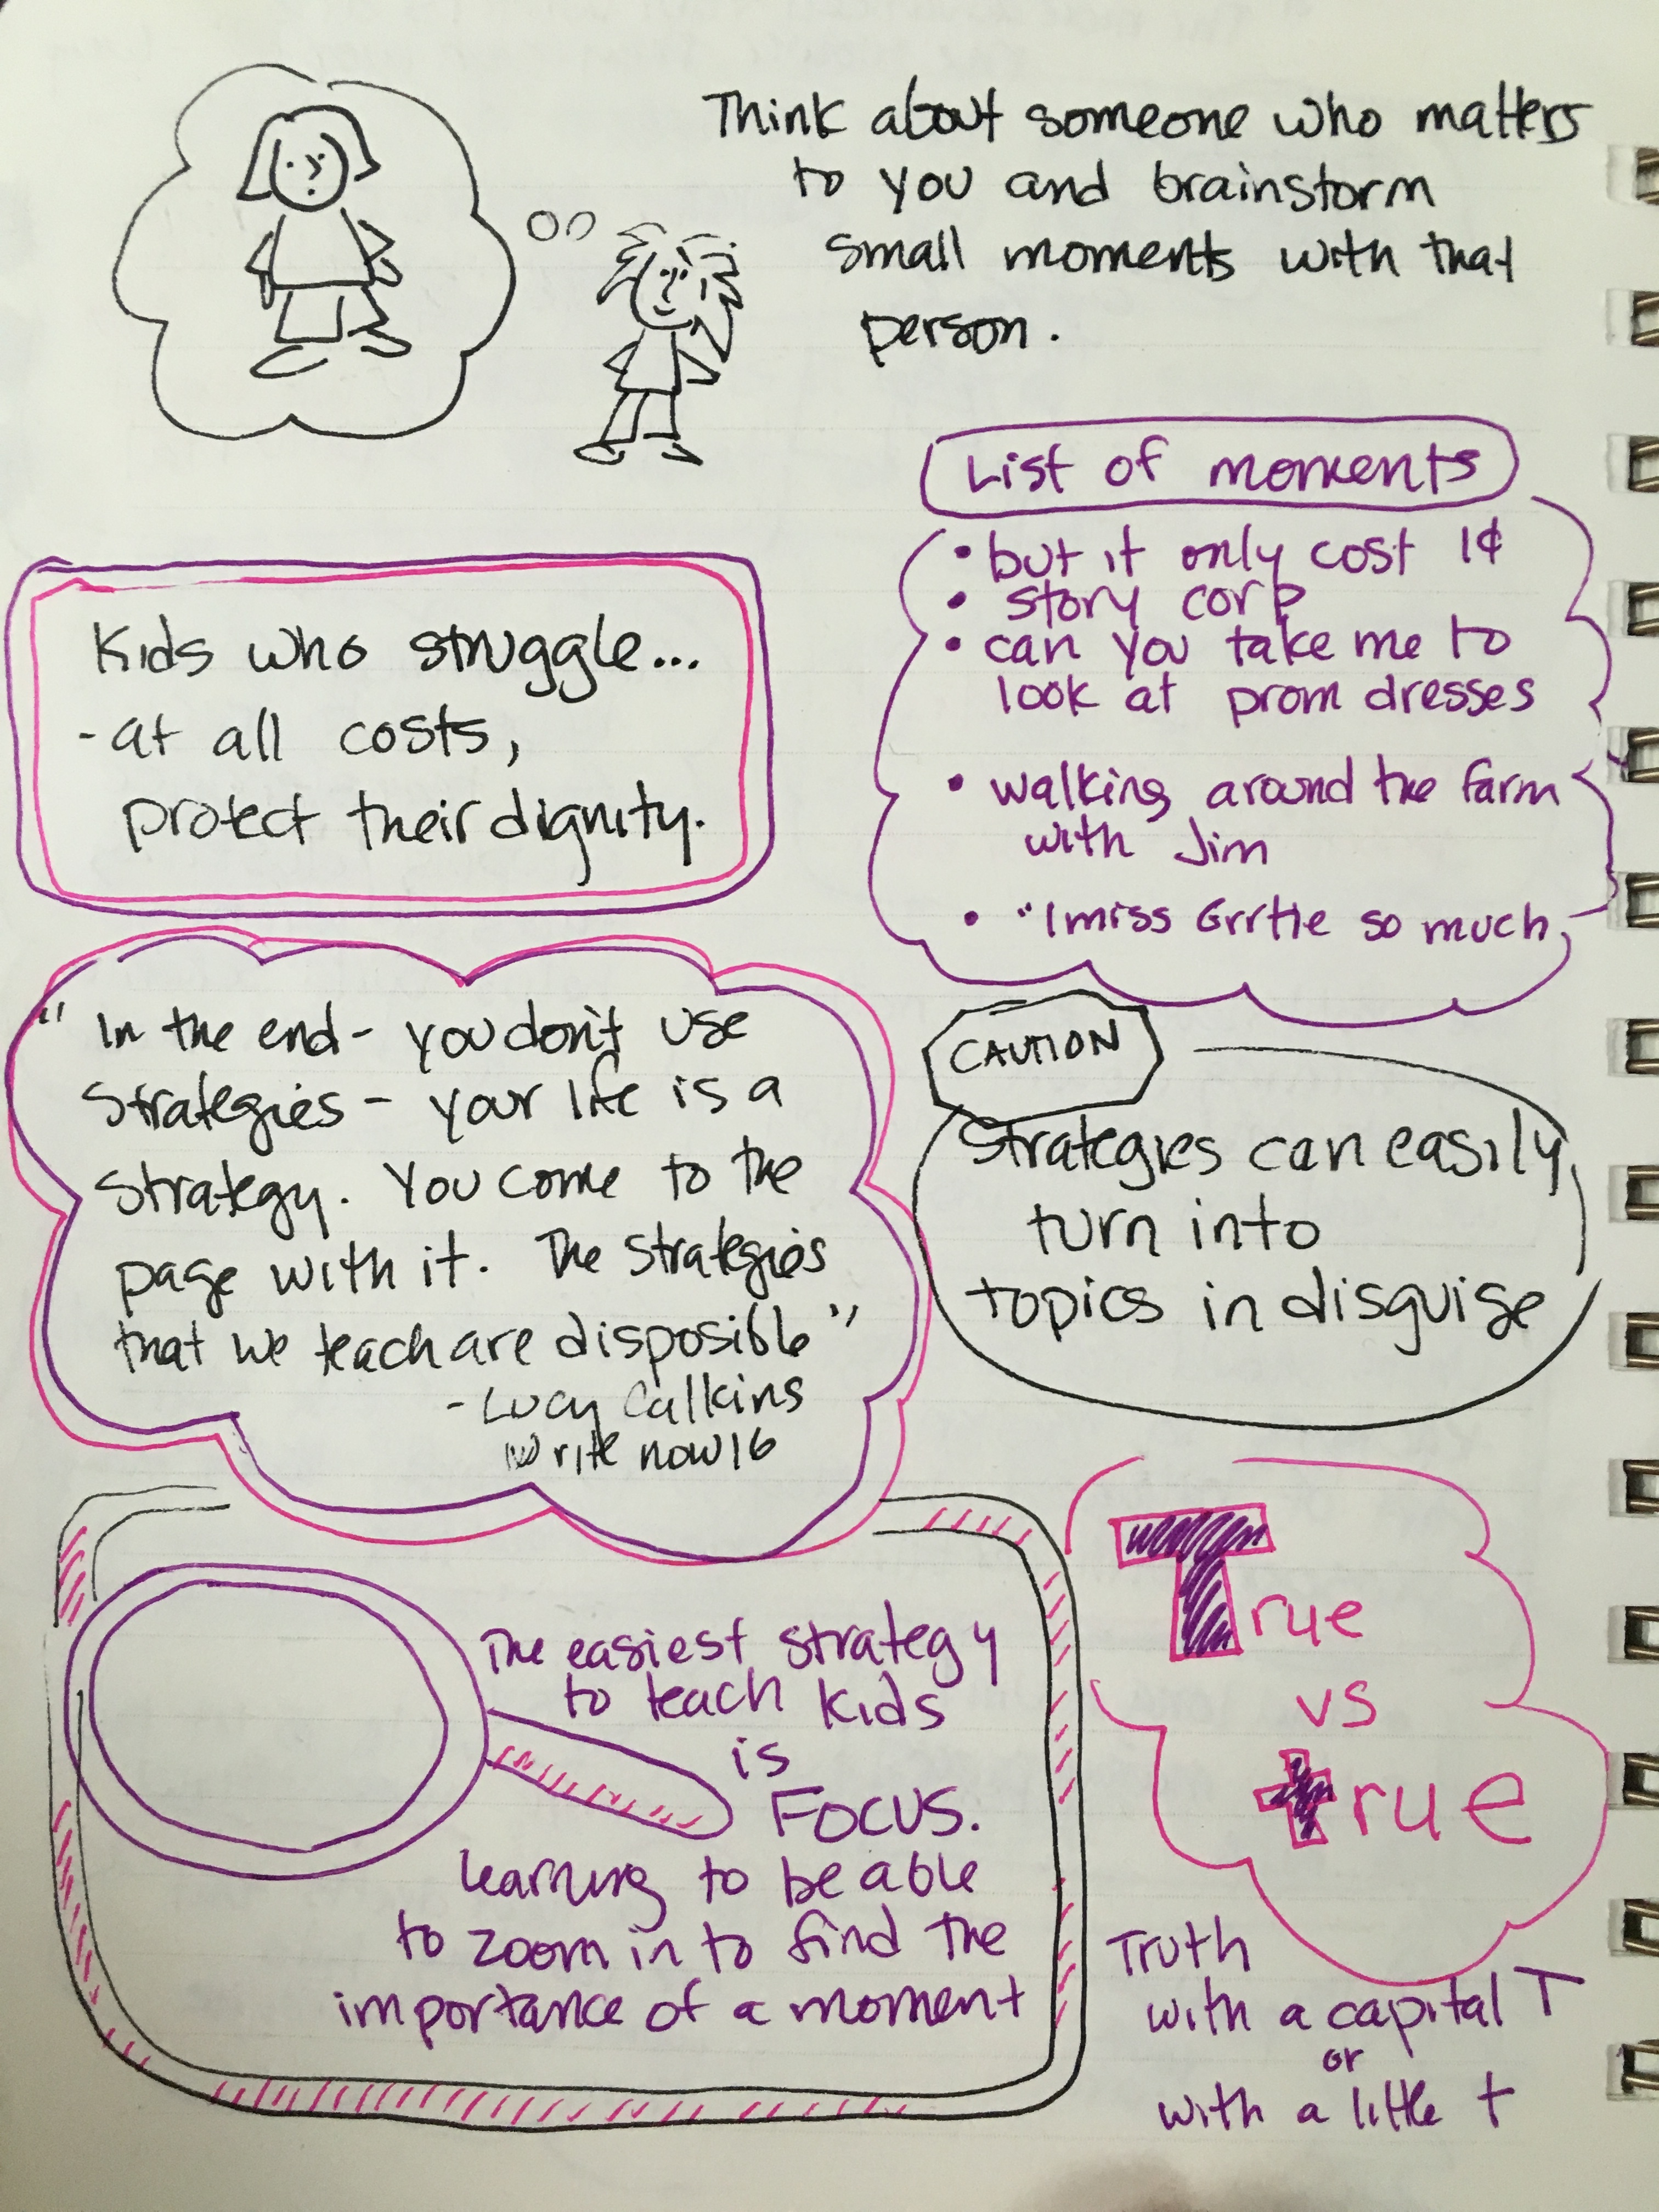 Think about someone who matters
to you and brainstorm
small moments with that
person.
List of moments
• but it only cost 1¢
• story corp
• can you take me to
look at prom dresses
• walking around the farm
with Jim
• "I miss Grrtie so much
Kids who struggle...
- at all costs,
protect their dignity.
"In the end - you don't use
strategies - your life is a
strategy. You come to the
page with it. The strategies
that we teach are disposible"
- Lucy Calkins
Write now 16
CAUTION
Strategies can easily
turn into
topics in disguise
The easiest strategy
to teach kids
is
FOCUS.
learning to be able
to zoom in to find the
importance of a moment
True
vs
true
Truth
with a capital T
or
with a little t